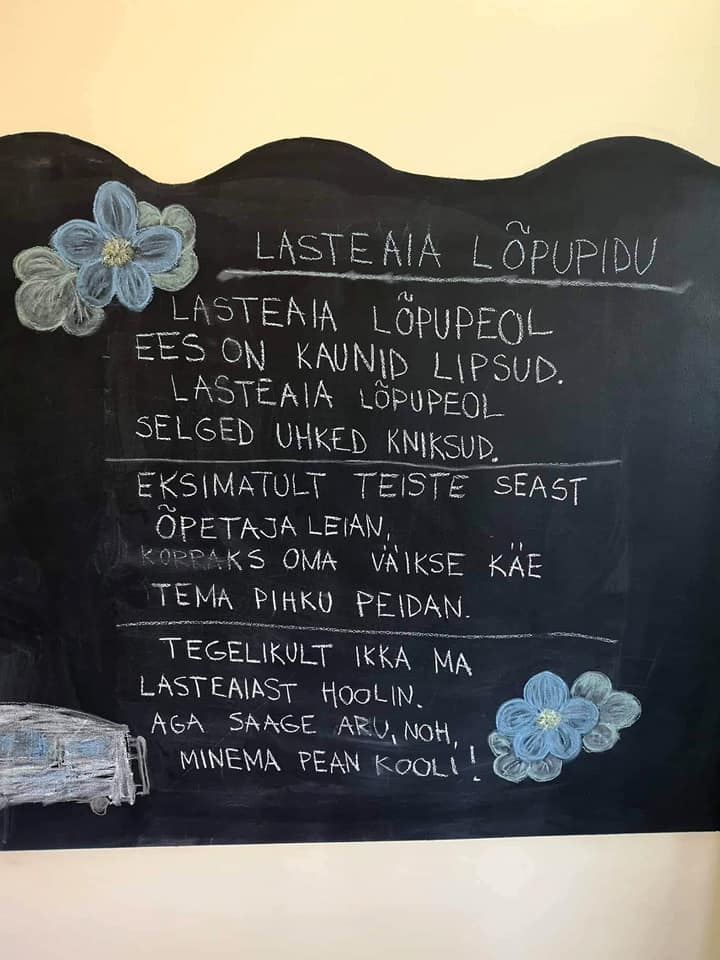 LASTEAIA LÕPUPIDU
LASTEAIA LÕPUPEOL
EES ON KAUNID LIPSUD.
LASTEAIA LÕPUPEOL
SELGED UHKED KNIKSUD.
EKSIMATULT TEISTE SEAST
ÕPETAJA LEIAN,
KORRAKS OMA VÄIKSE KÄE
TEMA PIHKU PEIDAN.
TEGELIKULT IKKA MA
LASTEAIAST HOOLIN.
AGA SAAGE ARU, NOH,
MINEMA PEAN KOOLI!